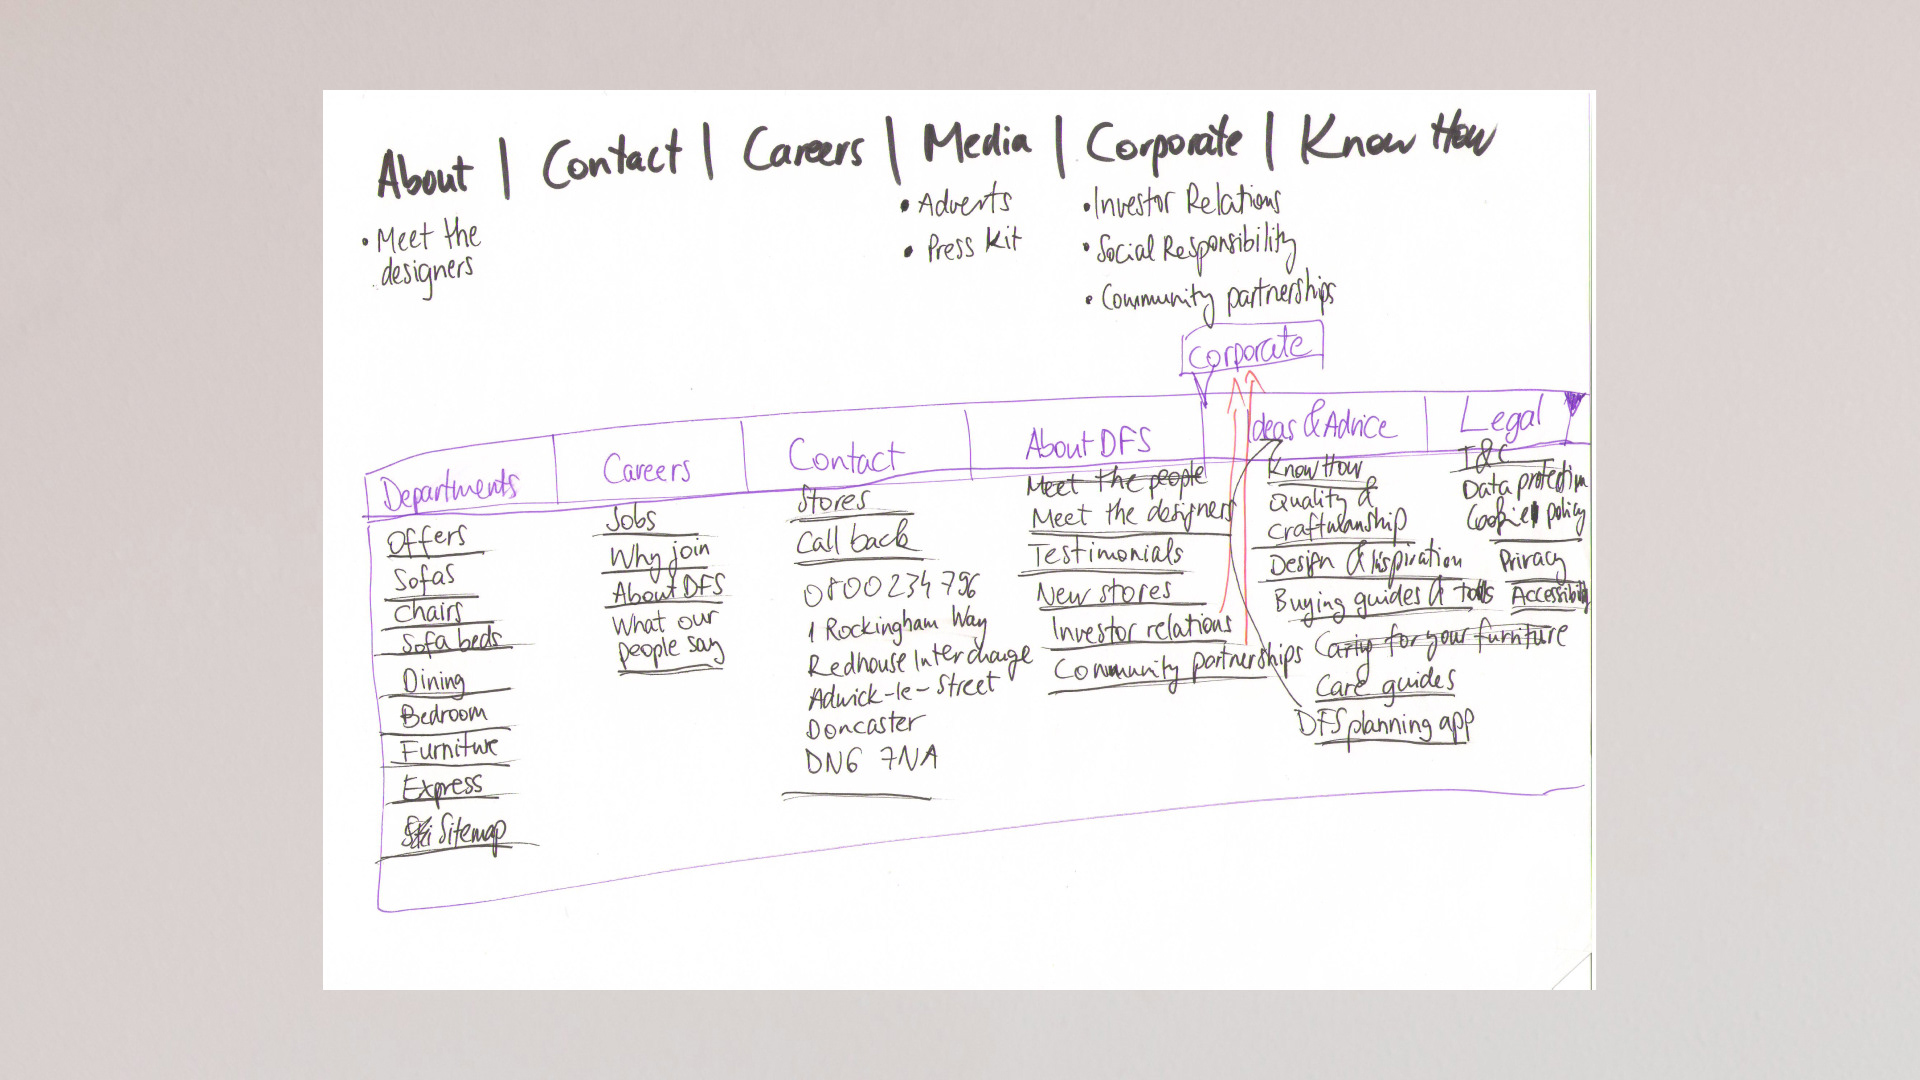 About | Contact | Careers | Media | Corporate | Know How
• Meet the
designers
• Adverts
• Press Kit
• Investor Relations
• Social Responsibility
• Community partnerships
Corporate
Departments
Offers
Sofas
Chairs
Sofa beds
Dining
Bedroom
Furniture
Express
Sitemap
Careers
Jobs
Why join
About DFS
What our
people say
Contact
Stores
Call back
0800 234 796
1 Rockingham Way
Redhouse Interchange
Adwick-le-Street
Doncaster
DN6 7NA
About DFS
Meet the people
Meet the designers
Testimonials
New stores
Investor relations
Community partnerships
Ideas & Advice
Know How
Quality &
Craftmanship
Design & Inspiration
Buying guides & tools
Caring for your furniture
Care guides
DFS planning app
Legal
T & C
Data protection
Cookie policy
Privacy
Accessibility